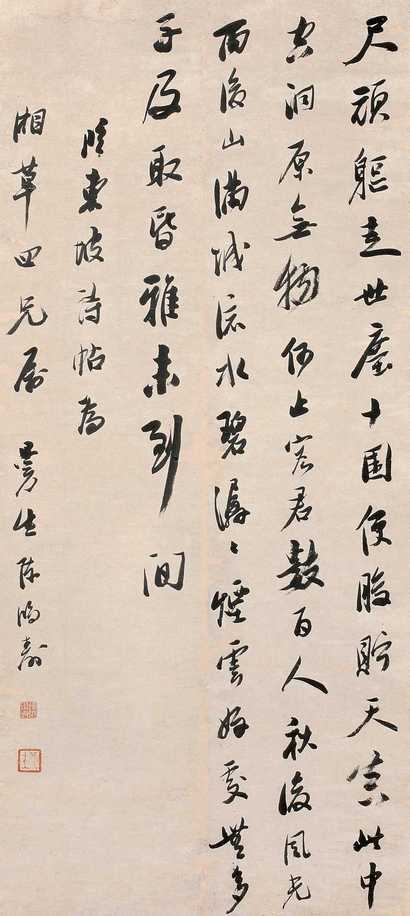 尺頑軀走世塵十圍便腹貯天真此中
空洞原無物何止容君數百人秋後風光
雨後山滿城流水碧潺〻煙雲好處無多
子及取昏雅未到間
臨東坡詩帖為
湘草四兄屬 曼生陳鴻壽